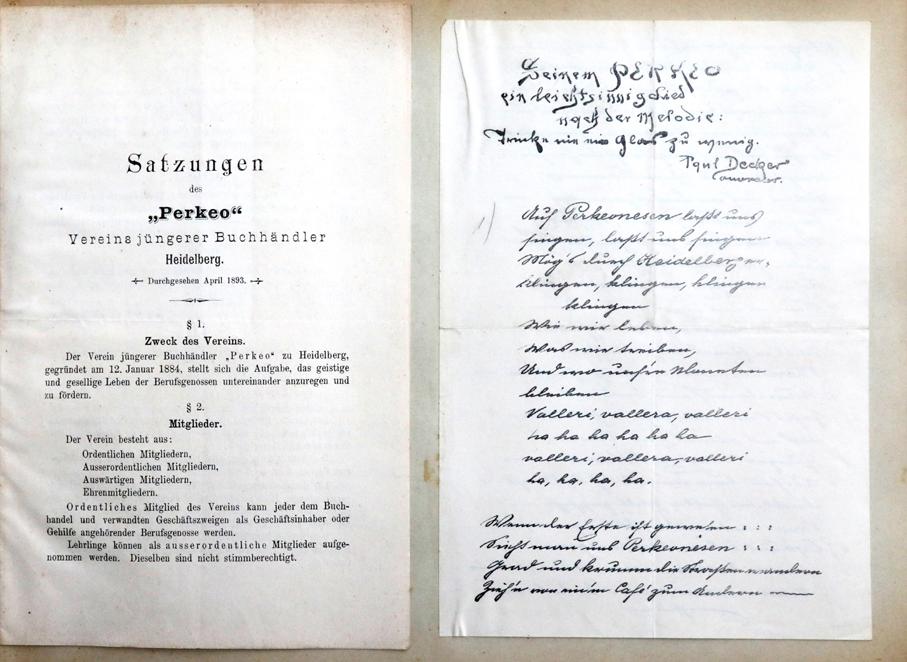 Satzungen
des
„Perkeo“
Vereins jüngerer Buchhändler
Heidelberg.
Durchgesehen April 1893.
§ 1.
Zweck des Vereins.
Der Verein jüngerer Buchhändler „Perkeo“ zu Heidelberg,
gegründet am 12. Januar 1884, stellt sich die Aufgabe, das geistige
und gesellige Leben der Berufsgenossen untereinander anzuregen und
zu fördern.
§ 2.
Mitglieder.
Der Verein besteht aus:
Ordentlichen Mitgliedern,
Ausserordentlichen Mitgliedern,
Auswärtigen Mitgliedern,
Ehrenmitgliedern.
Ordentliches Mitglied des Vereins kann jeder dem Buch-
handel und verwandten Geschäftszweigen als Geschäftsinhaber oder
Gehilfe angehörender Berufsgenosse werden.
Lehrlinge können als ausserordentliche Mitglieder aufge-
nommen werden. Dieselben sind nicht stimmberechtigt.
Seinem PERKEO
ein leichtsinnig Lied
nach der Melodie:
Trinke nie ein Glas zu wenig.
Paul Decker
1)
Auf Perkeonesen laßt uns
singen, laßt uns singen
Mög's durch Heidelberg
klingen, klingen, klingen
klingen
Wie wir leben,
Was wir treiben,
Und wo unsre Moneten
bleiben
Valleri, vallera, valleri
ha ha ha ha ha ha
valleri, vallera, valleri
ha, ha, ha, ha.
Wenn der Erste ist gewesen : : :
Sieht man uns Perkeonesen : : :
Grad und krumm die Straßen wandern
Zieh'n von ein'm Café zum Andern